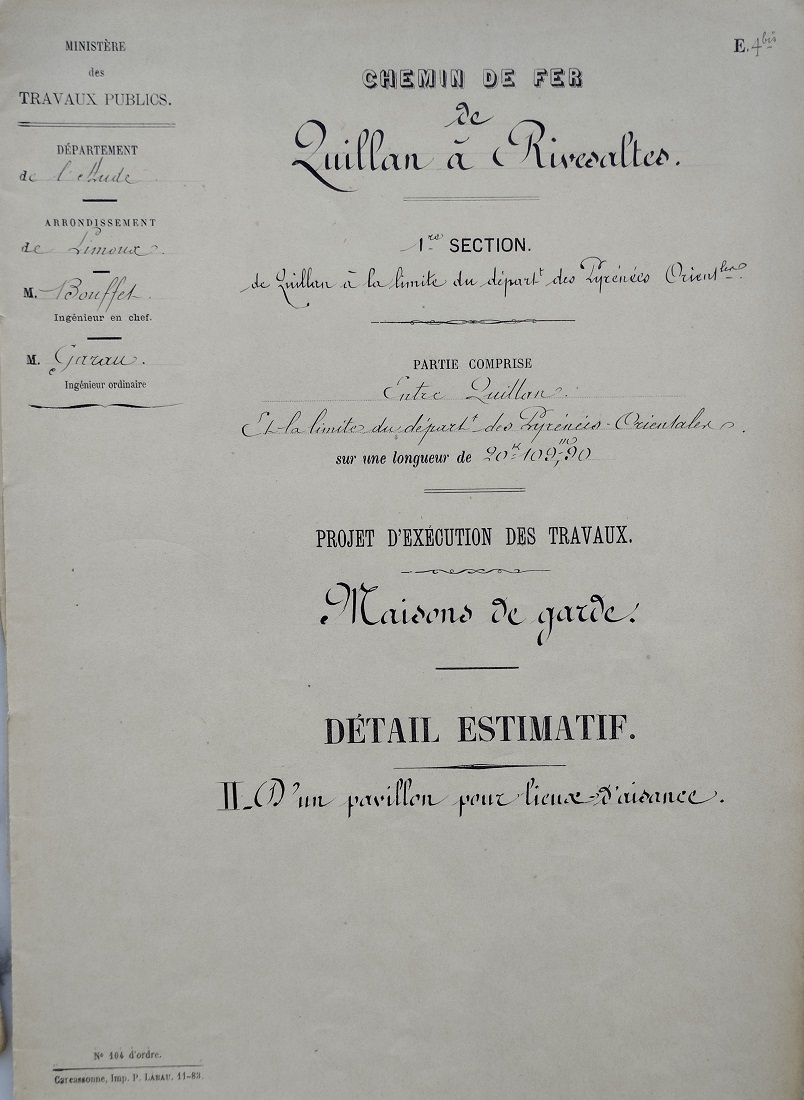 MINISTÈRE
des
TRAVAUX PUBLICS.
DÉPARTEMENT
de l'Aude
ARRONDISSEMENT
de Limoux.
M. Bouffet.
Ingénieur en chef.
M. Garau.
Ingénieur ordinaire
E. 4 bis
CHEMIN DE FER
de
Quillan à Rivesaltes.
1re SECTION.
de Quillan à la limite du départt des Pyrénées Orientles
PARTIE COMPRISE
Entre Quillan.
Et la limite du départt des Pyrénées-Orientales.
sur une longueur de 20k 109m,90
PROJET D'EXÉCUTION DES TRAVAUX.
Maisons de garde.
DÉTAIL ESTIMATIF.
II_D'un pavillon pour lieux-d'aisance.
No 104 d'ordre.
Carcassonne, Imp. P. LABAU. 11-83.